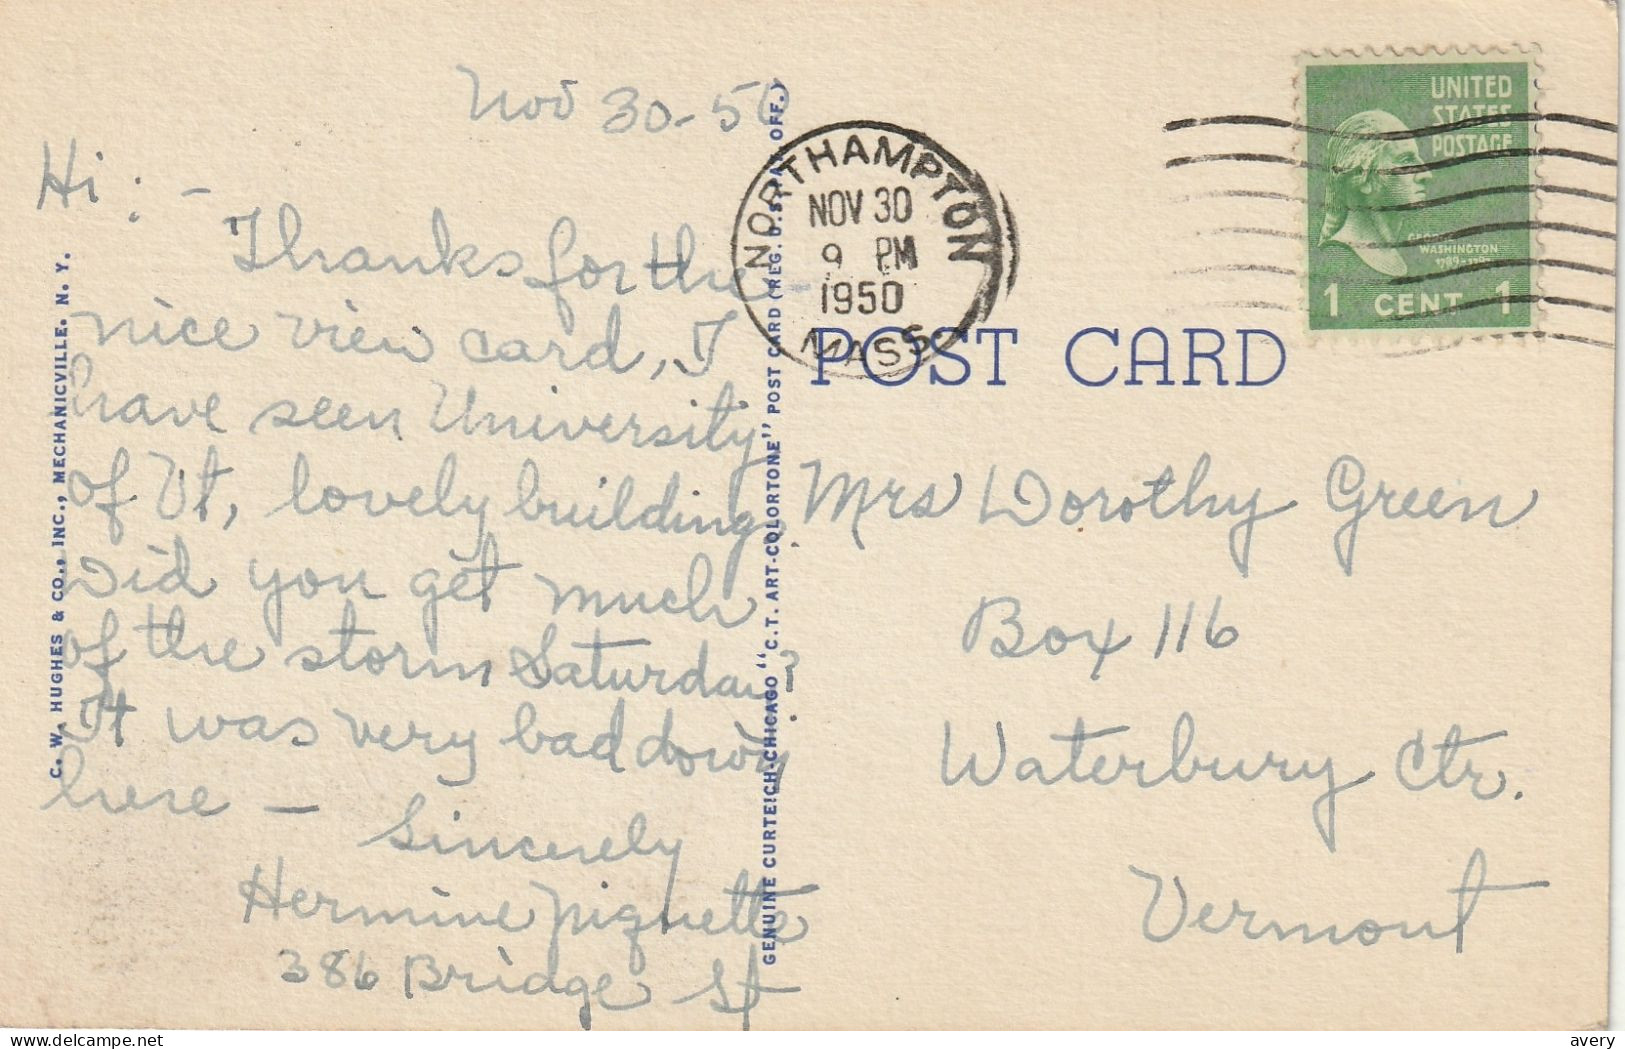 Nov 30-50
Hi: -
Thanks for the
nice view card, I
have seen University
of Vt, lovely building.
Did you get much
of the storm Saturday?
It was very bad down
here -
Sincerely
Hermine Piquette
386 Bridge St
C. W. HUGHES & CO., INC., MECHANICVILLE, N. Y.
GENUINE CURTEICH-CHICAGO "C.T. ART-COLORTONE" POST CARD (REG. U.S. PAT. OFF.)
NORTHAMPTON
NOV 30
9 PM
1950
MASS
UNITED
STATES
POSTAGE
GEORGE
WASHINGTON
1789-1797
1 CENT 1
POST CARD
Mrs Dorothy Green
Box 116
Waterbury Ctr.
Vermont
avery